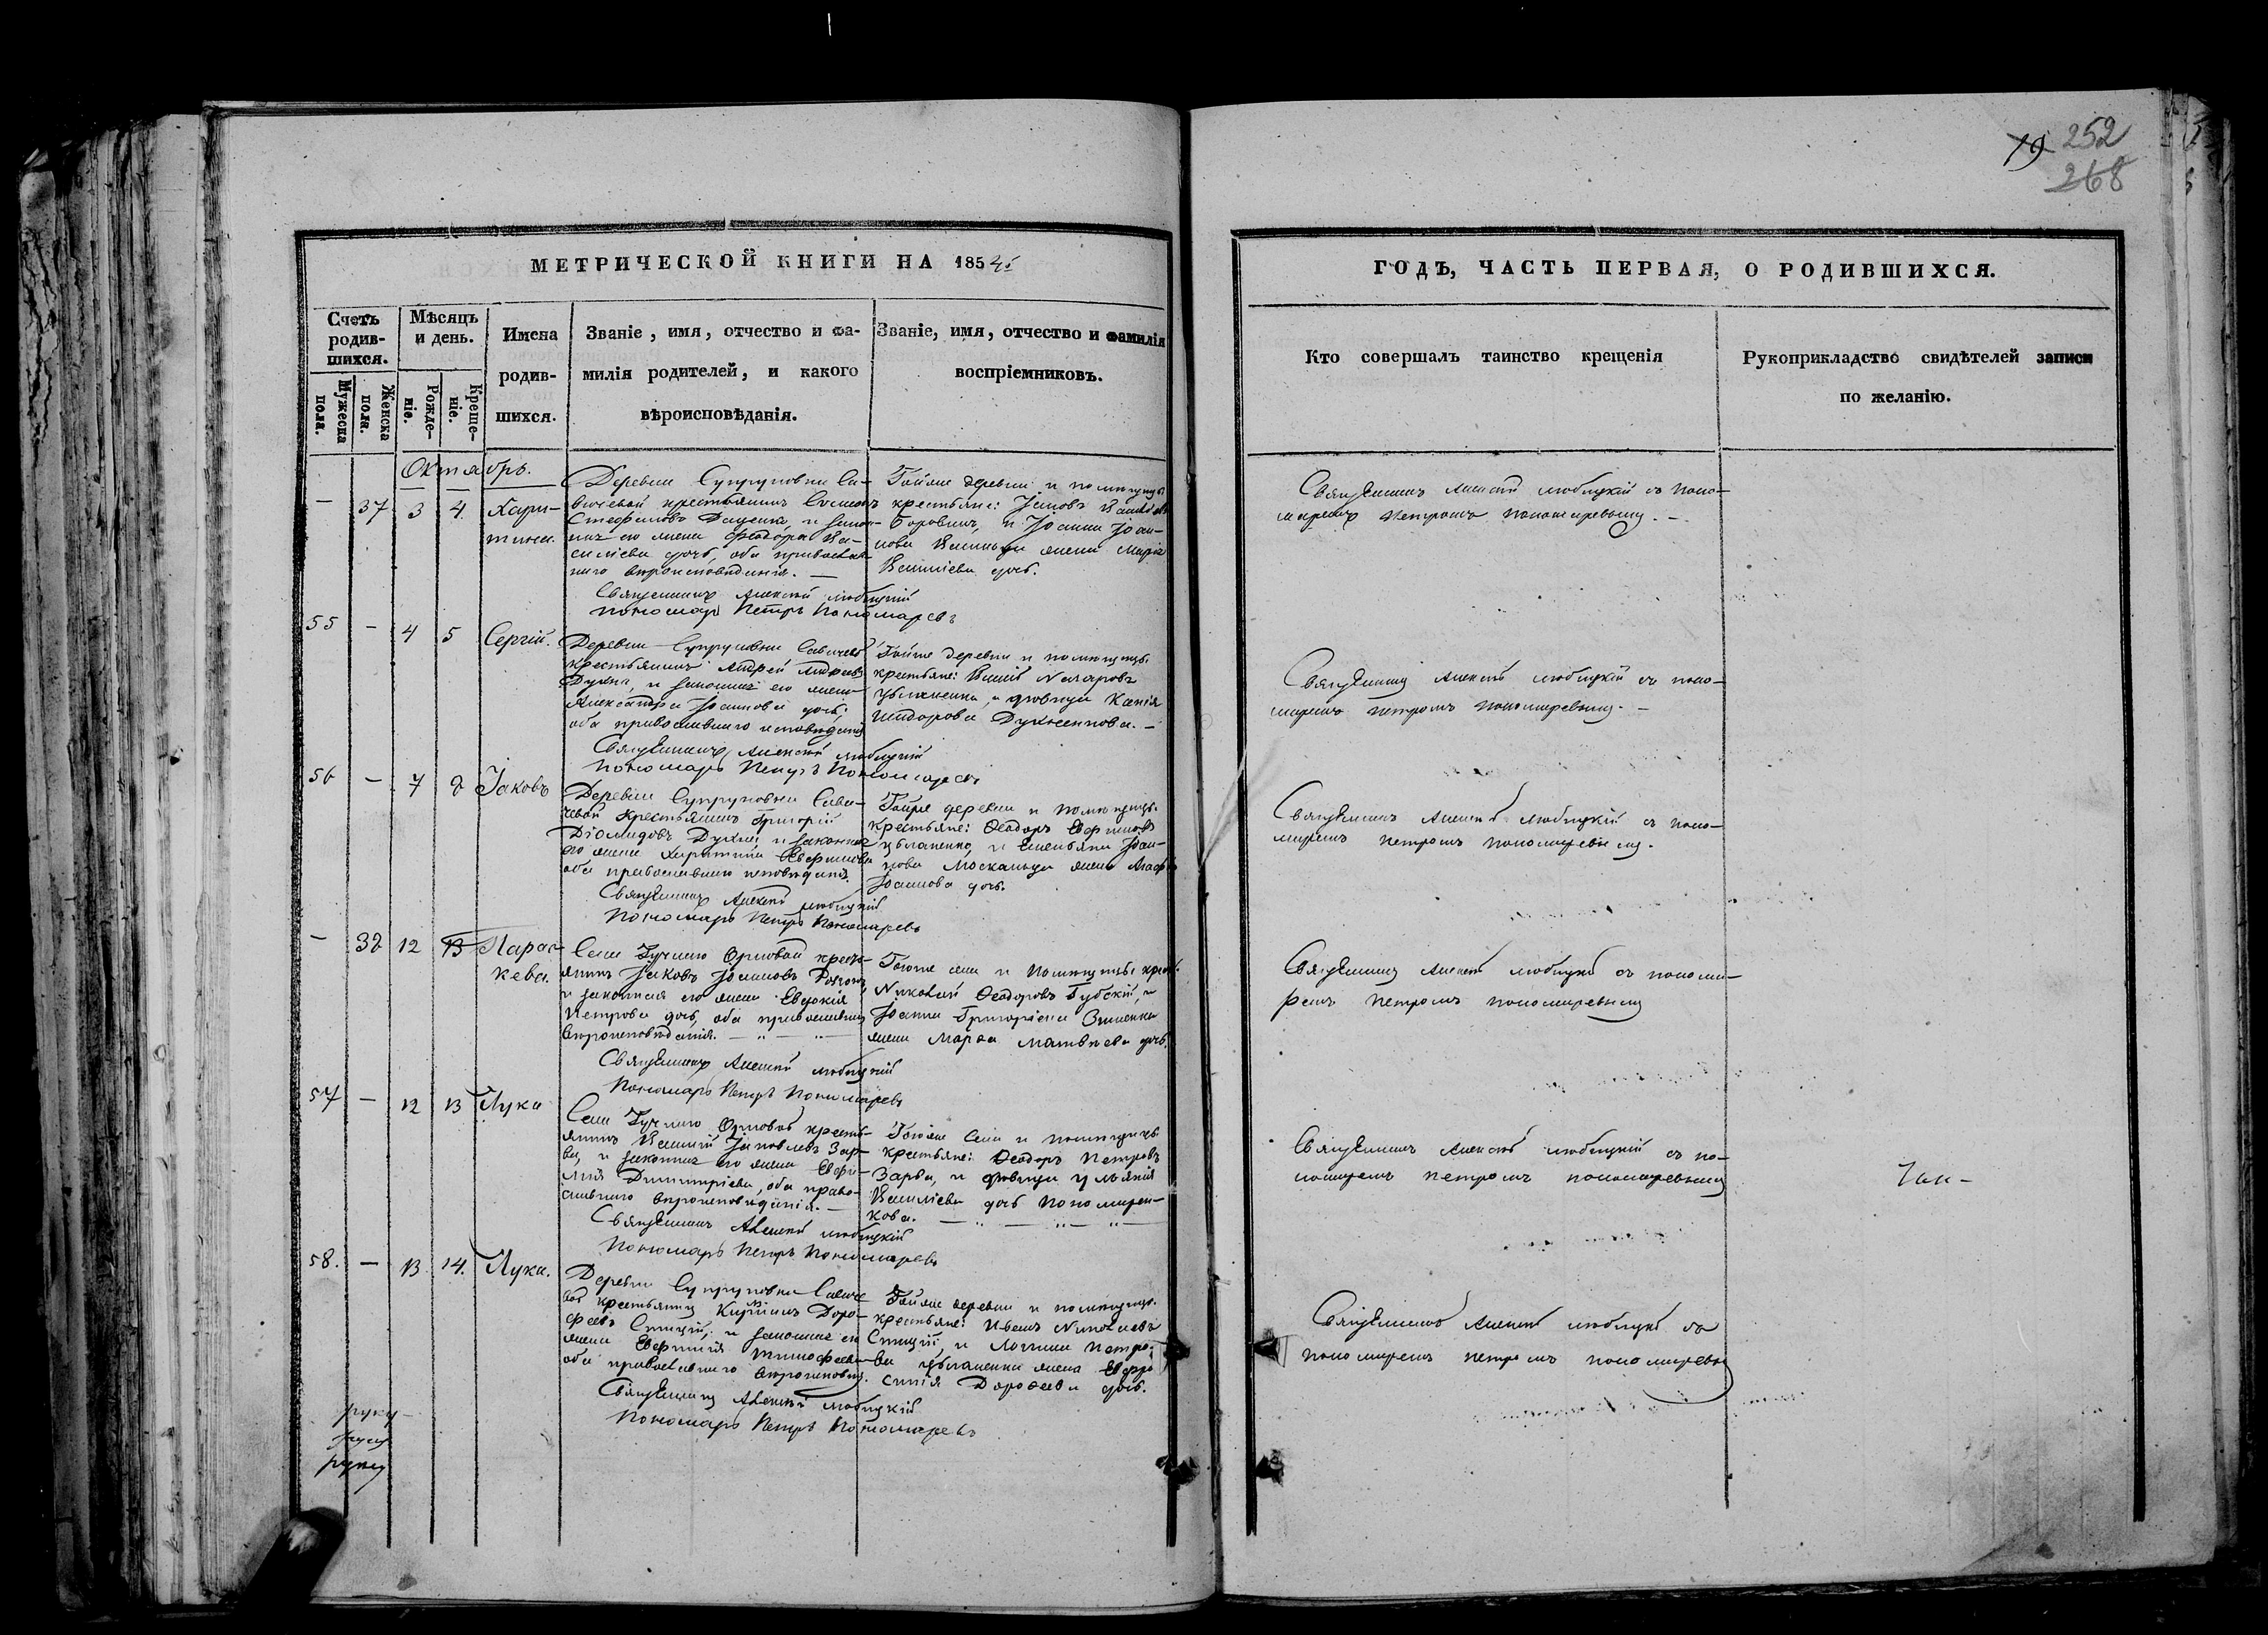 19 252
268
МЕТРИЧЕСКОЙ КНИГИ НА 1854
Счетъ родив-шихся.
Мужеска пола.
Женска пола.
Мѣсяцъ и день.
Рожде-ніе.
Креще-ніе.
Имена
родив-
шихся.
Званіе, имя, отчество и фа-
милія родителей, и какого
вѣроисповѣданія.
Званіе, имя, отчество и фамилія
воспріемниковъ.
Октябрь.
— 37 3 4 Хари-
тина.
Деревни Супруновки Са-
вичевой крестьянинъ
Стефановъ Даценко, и закон-
ная его жена Феодора Ва-
силіева дочь, оба православ-
наго вѣроисповѣданія. —
Священникъ Алексій Любицкій
Пономарь Петръ Пономаревъ
Тойже деревни и помѣщицы
крестьяне: Іаковъ
Боровикъ, и Іоанна Іоан-
нова жена Марія
Василіева дочь.
55 — 4 5 Сергій.
Деревни Супруновки Савичевой
крестьянинъ Андрей Андреевъ
Духна, и законная его жена
Александра Іоаннова дочь,
оба православнаго исповѣданія
Священникъ Алексій Любицкій
Пономарь Петръ Пономаревъ
Тойже деревни и помѣщицы
крестьяне: Назаровъ
Цыганенко, и дѣвица Ксенія
Исидорова Духненкова. —
56 — 7 8 Іаковъ
Деревни Супруновки Сави-
чевой крестьянинъ Григорій
Діомидовъ Духна, и законная
его жена Харитина Евфимова
оба православнаго исповѣданія.
Священникъ Алексій Любицкій
Пономарь Петръ Пономаревъ
Тойже деревни и помѣщицы
крестьяне: Ѳеодоръ Евфимовъ
Цыганенко, и Емельяна Іоан-
нова Москальца жена Агафія
Іоаннова дочь.
— 38 12 13 Парас-
кева.
Села Гучино Орловой кресть-
янинъ Іаковъ Іоанновъ
и законная его жена Евдокія
Петрова дочь, оба православнаго
вѣроисповѣданія. — " — " —
Священникъ Алексій Любицкій
Пономарь Петръ Пономаревъ
Тогоже села и помѣщицы крест.
Николай Ѳеодоровъ Губскій, и
Іоанна Григоріева Зинченка
жена Марѳа Матвѣева дочь.
57 — 12 13 Лука
Села Гучино Орловой кресть-
янинъ Василій Іаковлевъ Зар-
ва, и законная его жена Евфи-
мія Димитріева, оба право-
славнаго вѣроисповѣданія. —
Священникъ Алексій Любицкій
Пономарь Петръ Пономаревъ
Тогоже села и помѣщицы
крестьяне: Ѳеодоръ Петровъ
Зарва, и дѣвица Ульянія
Василіева дочь Пономарен-
кова. — " — " — " —
58. — 13 14. Лука.
Деревни Супруновки Саваче
вой крестьянинъ Доро-
феевъ Спицкій, и законная его
жена Евфимія Тимофеева
оба православнаго вѣроисповѣд.
Священникъ Алексій Любицкій
Пономарь Петръ Пономаревъ
Тойже деревни и помѣщицы
крестьяне: Иванъ Николаевъ
Спицкій, и Логгина Петро-
ва Цыганенка жена Евфро
синія Дороѳеева дочь.
руку
руку
руку
ГОДЪ, ЧАСТЬ ПЕРВАЯ, О РОДИВШИХСЯ.
Кто совершалъ таинство крещенія
Рукоприкладство свидѣтелей записи
по желанію.
Священникъ Алексій Любицкій съ поно-
маремъ Петромъ Пономаревымъ. —
Священникъ Алексій Любицкій съ поно-
маремъ Петромъ Пономаревымъ. —
Священникъ Алексій Любицкій съ поно-
маремъ Петромъ Пономаревымъ.
Священникъ Алексій Любицкій съ понома-
ремъ Петромъ Пономаревымъ
Священникъ Алексій Любицкій съ по-
номаремъ Петромъ Пономаревымъ
Священникъ Алексій Любицкій съ
пономаремъ Петромъ Пономаревы